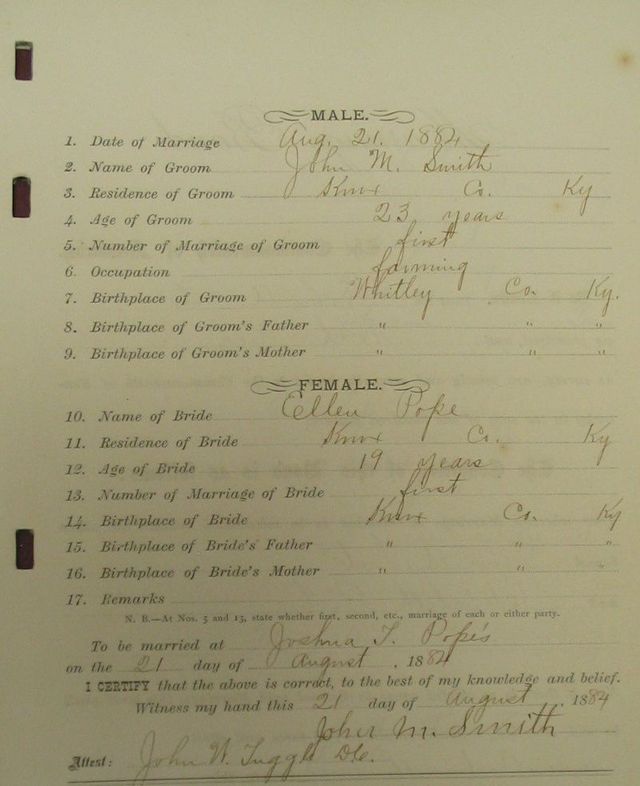 MALE.
1. Date of Marriage Aug. 21. 1884
2. Name of Groom John M. Smith
3. Residence of Groom Knox Co. Ky
4. Age of Groom 23 years
5. Number of Marriage of Groom first
6. Occupation farming
7. Birthplace of Groom Whitley Co. Ky.
8. Birthplace of Groom's Father " " "
9. Birthplace of Groom's Mother " " "
FEMALE.
10. Name of Bride Ellen Pope
11. Residence of Bride Knox Co. Ky
12. Age of Bride 19 years
13. Number of Marriage of Bride first
14. Birthplace of Bride Knox Co. Ky
15. Birthplace of Bride's Father " " "
16. Birthplace of Bride's Mother " " "
17. Remarks
N. B.—At Nos. 5 and 13, state whether first, second, etc., marriage of each or either party.
To be married at Joshua T. Pope's
on the 21 day of August, 1884
I CERTIFY that the above is correct, to the best of my knowledge and belief.
Witness my hand this 21 day of August, 1884
John M. Smith
Attest: John W. Tuggle D.C.